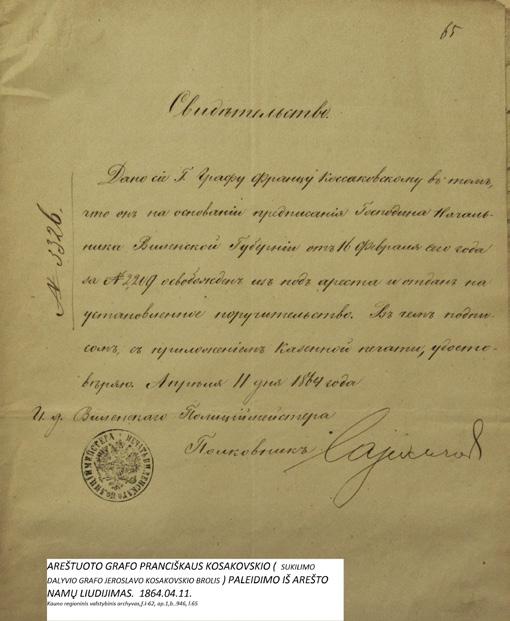 65
Свидѣтельство.
Дано сіе Г. Графу Францу Коссаковскому въ томъ,
что онъ на основаніи предписанія Господина Началь-
ника Виленской Губерніи отъ 16 Февраля сего года
за № 2219 освобожденъ изъ подъ ареста и отданъ на
установленное поручительство. Въ чемъ подпи-
сомъ, съ приложеніемъ казенной печати, удосто-
вѣряю. Апреля 11 дня 1864 года
И. д. Виленскаго Полиціймейстера
Полковникъ
№ 3326.
ПЕЧАТЬ ВИЛЕНСКАГО ПОЛИЦІЙМЕЙСТЕРА
AREŠTUOTO GRAFO PRANCIŠKAUS KOSAKOVSKIO ( SUKILIMO
DALYVIO GRAFO JEROSLAVO KOSAKOVSKIO BROLIS ) PALEIDIMO IŠ AREŠTO
NAMŲ LIUDIJIMAS. 1864.04.11.
Kauno regioninis valstybinis archyvas,f.I-62, ap.1,b..946, l.65